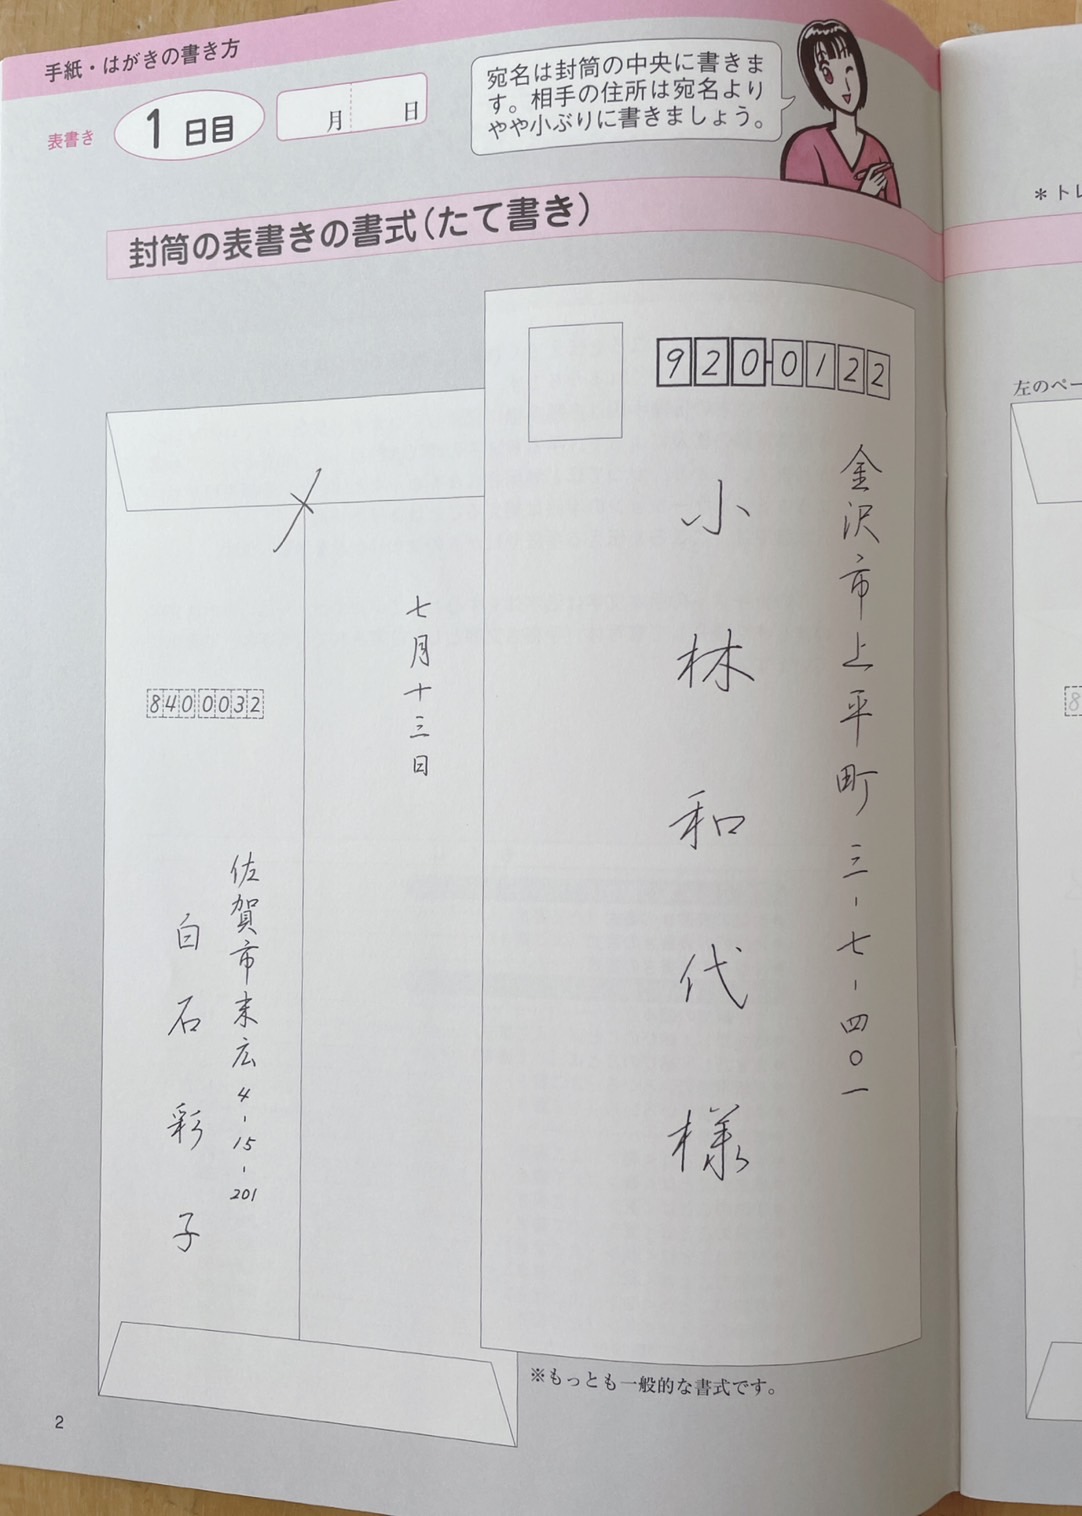 手紙・はがきの書き方
表書き
1日目
月 日
宛名は封筒の中央に書きま
す。相手の住所は宛名より
やや小ぶりに書きましょう。
封筒の表書きの書式(たて書き)
920-0122
金沢市上平町三-七-四〇一
小林和代様
七月十三日
〆
8400032
佐賀市末広4-15-201
白石彩子
※もっとも一般的な書式です。
2
*トレ
左のペー
8